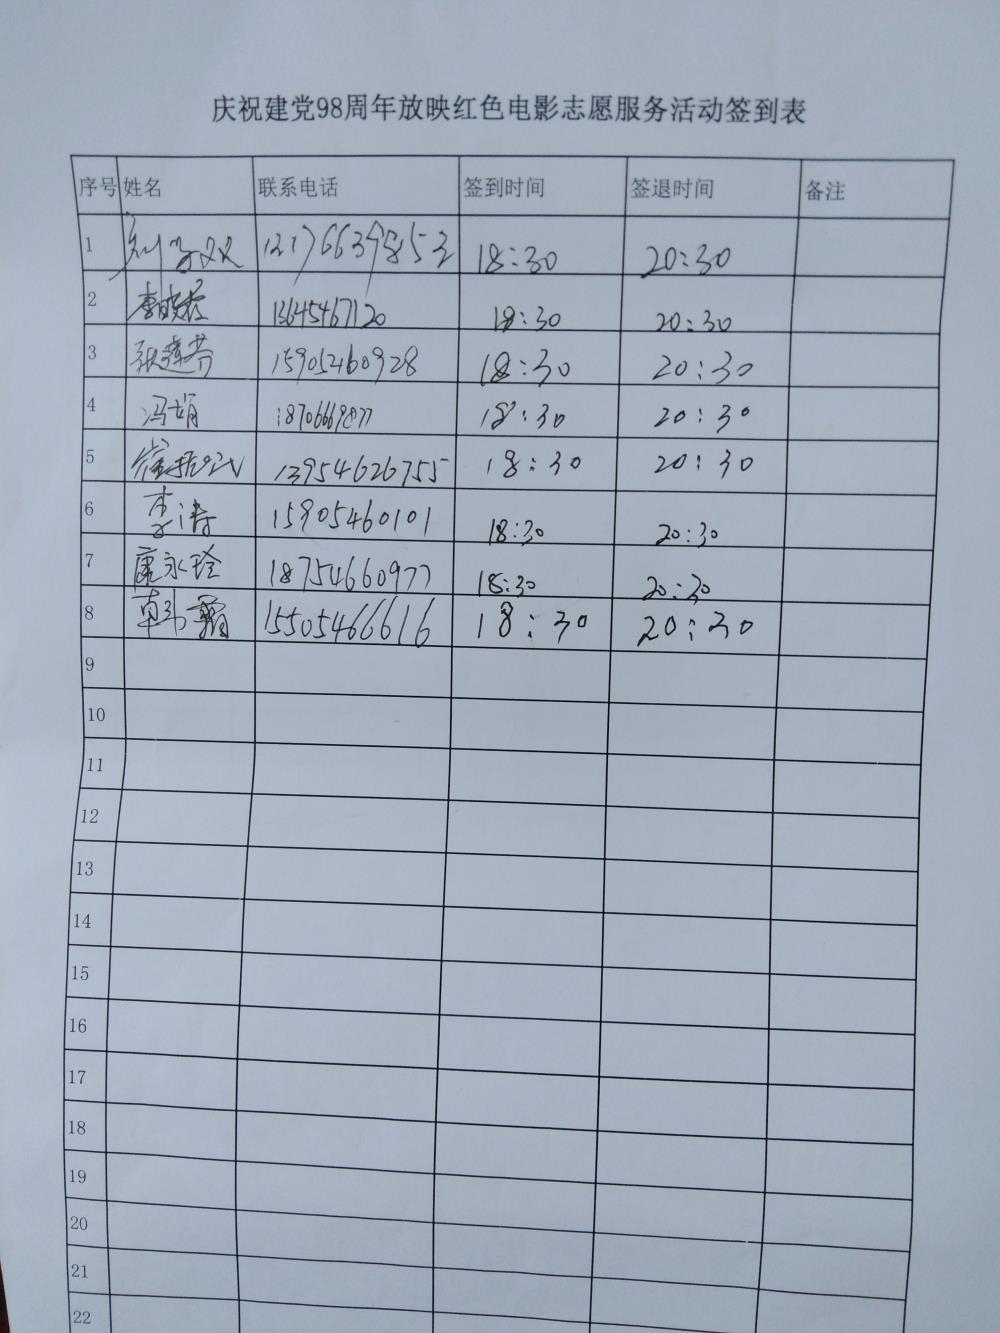 庆祝建党98周年放映红色电影志愿服务活动签到表
序号 姓名 联系电话 签到时间 签退时间 备注
1 18:30 20:30
2 13645467120 18:30 20:30
3 张莲芬 15905460928 18:30 20:30
4 冯娟 18706669877 18:30 20:30
5 13954626755 18:30 20:30
6 李涛 15905460101 18:30 20:30
7 唐永玲 18754660977 18:30 20:30
8 韩霜 15505466616 18:30 20:30
9
10
11
12
13
14
15
16
17
18
19
20
21
22